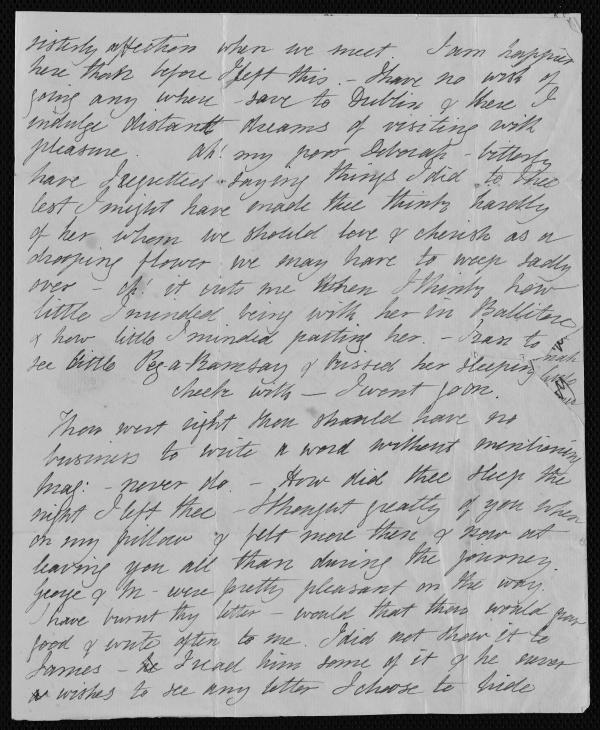 sisterly affection when we meet I am happier
here than before I left this. - I have no wish of
going any where - save to Dublin & there I
indulge distant dreams of visiting with
pleasure. Ah! my poor Deborah - bitterly
have I regretted saying things I did to thee
lest I might have made thee think hardly
of her whom we should love & cherish as a
drooping flower we may have to weep sadly
over - oh! it cuts me when I think how
little I minded being with her in Ballitore
& how little I minded parting her. - I ran to
see little Peg-a-Ramsay & kissed her sleeping
cheek with - I wont go on.
Thou wert right thou should have no
business to write a word without mentioning
Mag: - never do. - How did thee sleep the
night I left thee - I thought greatly of you when
on my pillow & felt more then & now at
leaving you all than during the journey.
George & M - were pretty pleasant on the way.
I have burnt thy letter - would that thou would
good & write often to me. I did not show it to
James - I read him some of it & he never
wishes to see any letter I choose to hide